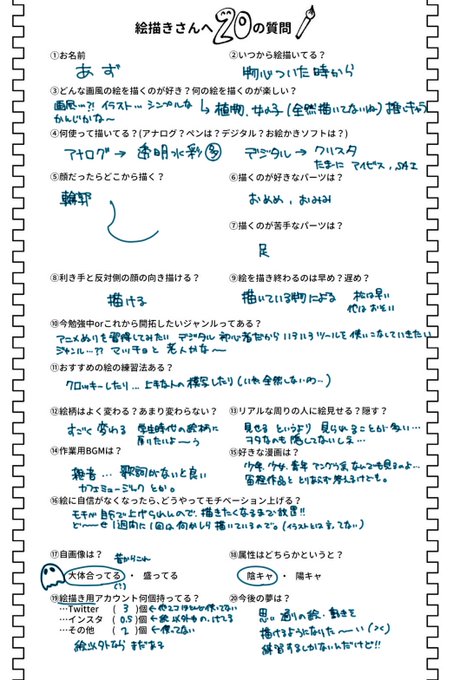 絵描きさんへ20の質問
①お名前
あず
②いつから絵描いてる?
物心ついた時から
③どんな画風の絵を描くのが好き?何の絵を描くのが楽しい?
画風…?! イラスト… シンプルな
かんじかな〜
植物、女の子(全然描いてないね)推しキャラ
④何使って描いてる?(アナログ?ペンは?デジタル?お絵かきソフトは?)
アナログ→ 透明水彩 多
デジタル→ クリスタ
たまに アイビス、SAI
⑤顔だったらどこから描く?
輪郭
⑥描くのが好きなパーツは?
おめめ、おみみ
⑦描くのが苦手なパーツは?
足
⑧利き手と反対側の顔の向き描ける?
描ける
⑨絵を描き終わるのは早め?遅め?
描いている物による
松は早い
他はおそい
⑩今勉強中orこれから開拓したいジャンルってある?
アニメぬりを習得してみたい デジタル 初心者だから いろいろツールを使いこなしていきたい
ジャンル…?? マッチョと 老人かな〜
⑪おすすめの絵の練習法ある?
クロッキーしたり… 上手な人の模写したり(いや全然しないの…)
⑫絵柄はよく変わる?あまり変わらない?
すごく 変わる
学生時代の絵柄に
戻りたいよーう
⑬リアルな周りの人に絵見せる?隠す?
見せる というより 見られることが多い…
ヲタなのも隠してないし笑…
⑭作業用BGMは?
雑音… 歌詞がないと良い
カフェミュージック とか。
⑮好きな漫画は?
少年、少女、青年 なんでも見るのよ…
⑯絵に自信がなくなったら、どうやってモチベーション上げる?
モチが自分で上げられんので、描きたくなるまで放置!!
ど〜〜せ 1週間に1回は何かしら描いているので。(イラストとは言ってない)
⑰自画像は?
昔からこれ
大体合ってる ・ 盛ってる
⑱属性はどちらかというと?
陰キャ ・ 陽キャ
⑲絵描き用アカウント何個持ってる?
…Twitter ( 3 )個
…インスタ ( 0.5 )個
…その他 ( 2 )個 ←使ってない
絵以外なら まだある
⑳今後の夢は?
思い通りの絵・動きを
描けるようになりた〜〜い
練習するしかないんだけど!!